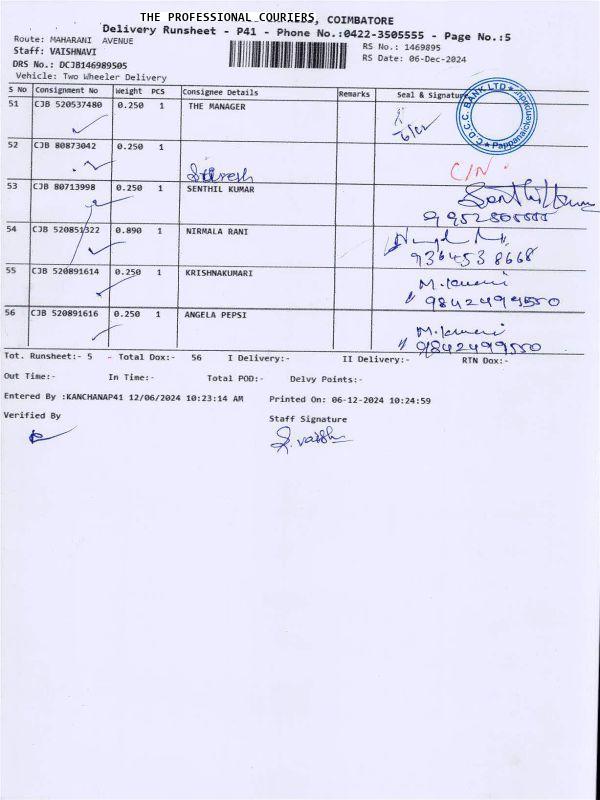 THE PROFESSIONAL COURIERS, COIMBATORE
Delivery Runsheet - P41 - Phone No.:0422-3505555 - Page No.:5
Route: MAHARANI AVENUE
RS No.: 1469895
Staff: VAISHNAVI
RS Date: 06-Dec-2024
DRS No.: DCJB146989505
Vehicle: Two Wheeler Delivery
S No Consignment No Weight PCS Consignee Details Remarks Seal & Signature
51 CJB 520537480 0.250 1 THE MANAGER
C.D.C.C. BANK LTD ★ Pappanaickenpudur ★
52 CJB 80873042 0.250 1
Suresh C/N
53 CJB 80713998 0.250 1 SENTHIL KUMAR
Senthil Kumar
54 CJB 520851322 0.890 1 NIRMALA RANI
9364538668
55 CJB 520891614 0.250 1 KRISHNAKUMARI M. Kumari
9842499550
56 CJB 520891616 0.250 1 ANGELA PEPSI M. Kumari
9842499550
Tot. Runsheet:- 5 - Total Dox:- 56 I Delivery:- II Delivery:- RTN Dox:-
Out Time:- In Time:- Total POD:- Delvy Points:-
Entered By :KANCHANAP41 12/06/2024 10:23:14 AM Printed On: 06-12-2024 10:24:59
Verified By Staff Signature
S. Vaish